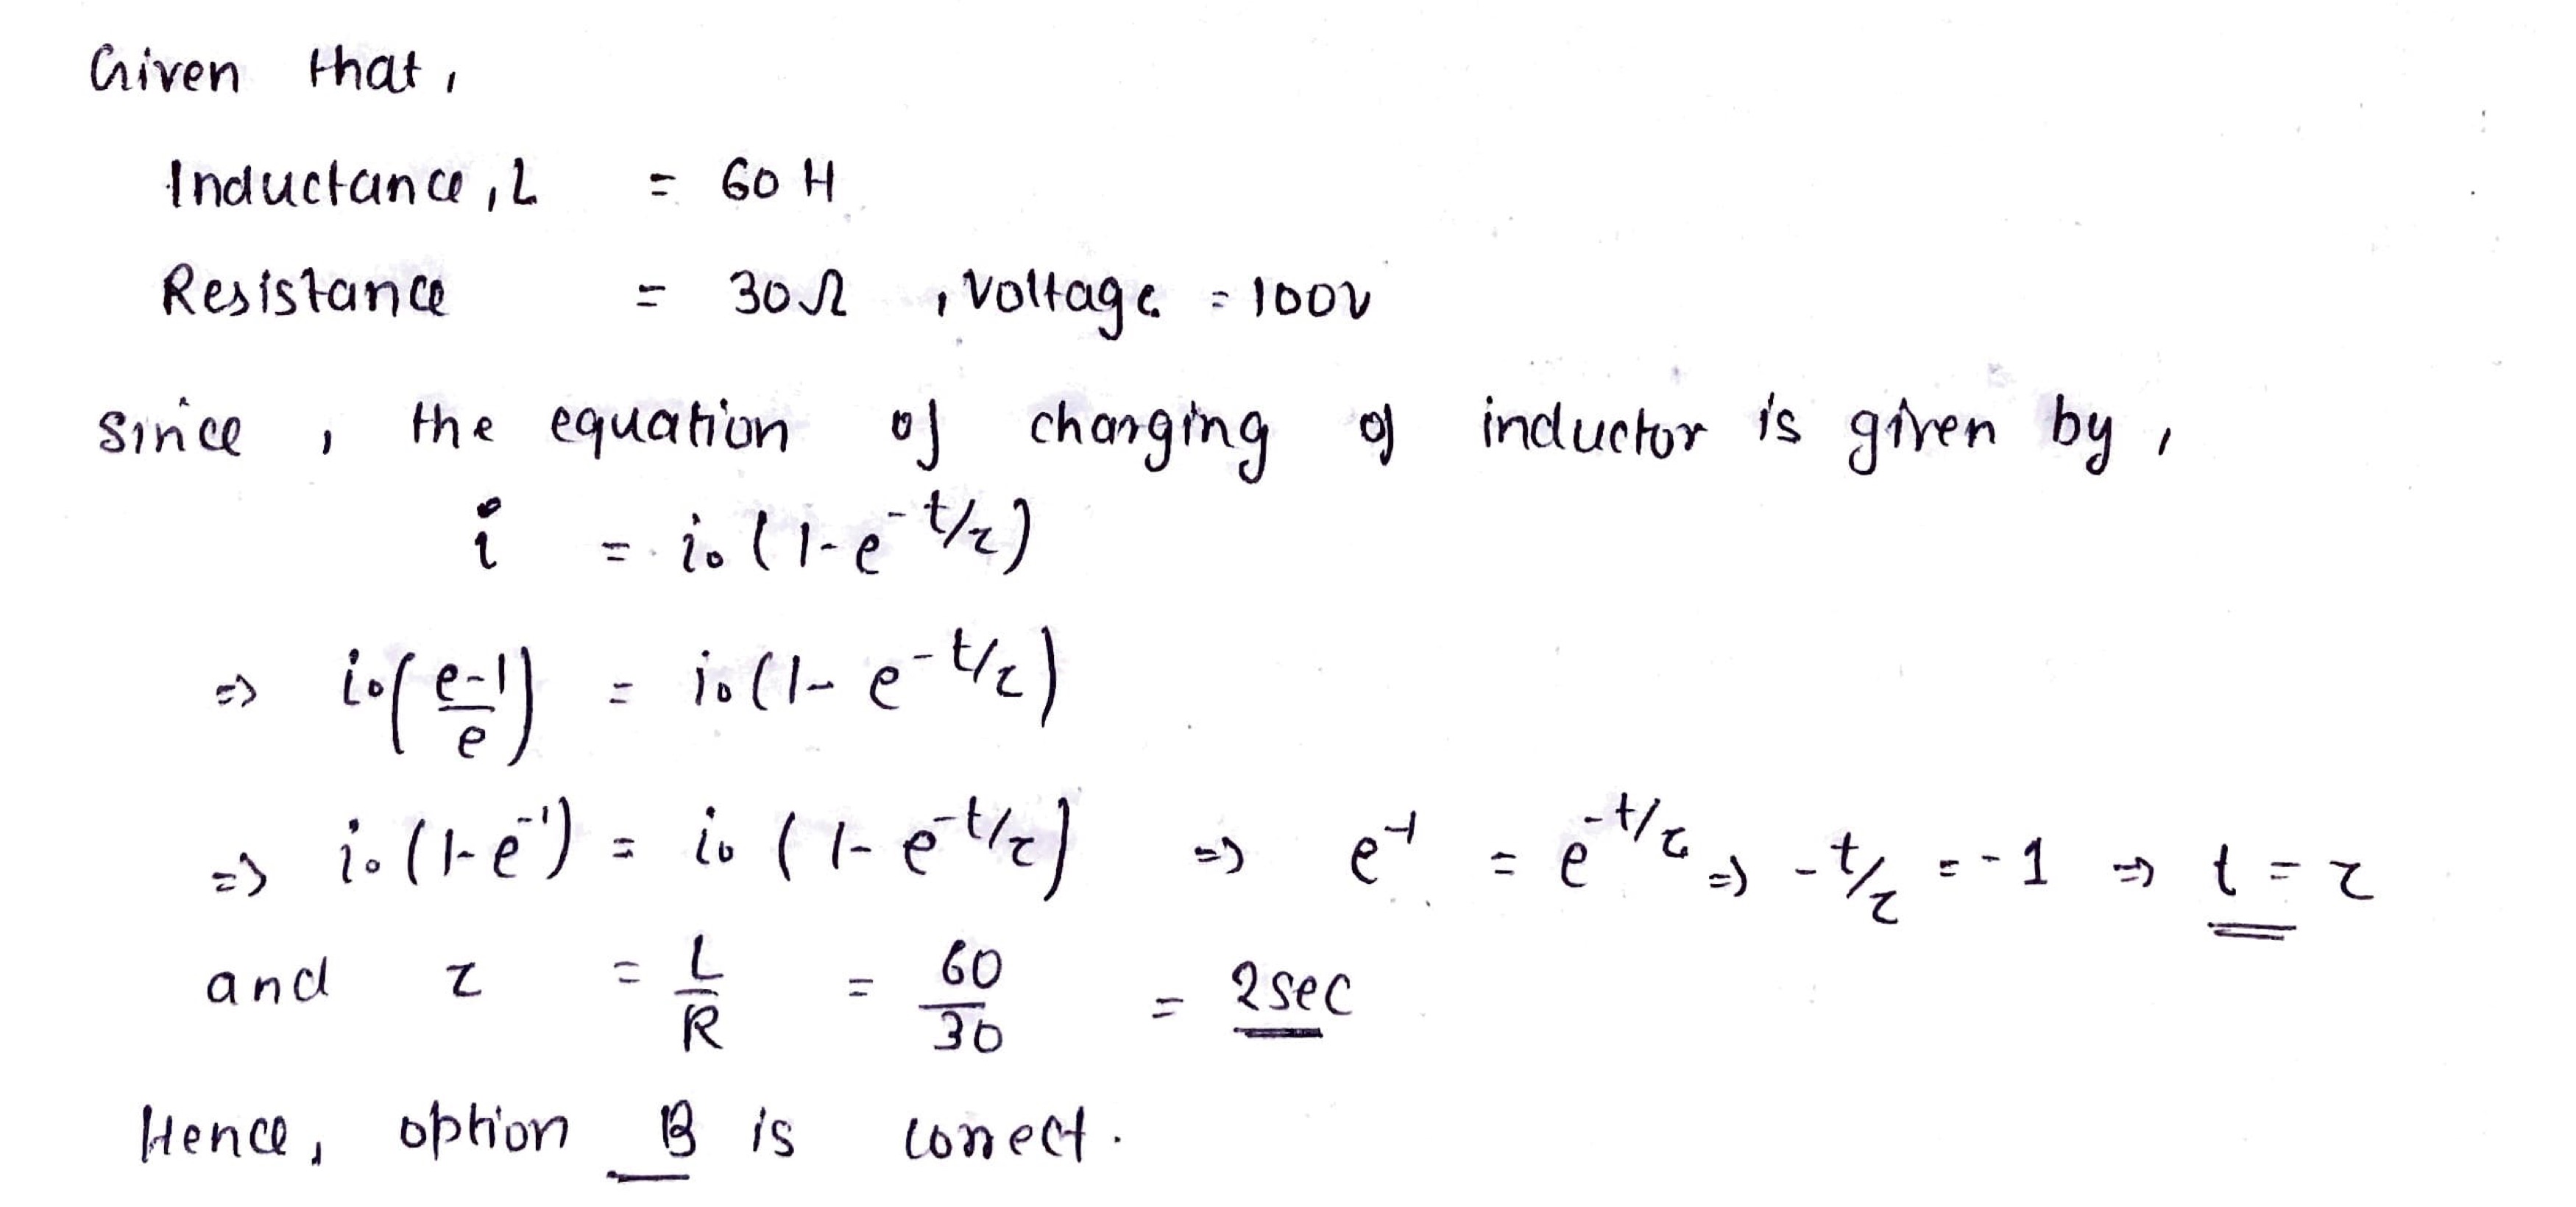 Given that,
Inductance, L = 60 H
Resistance = 30Ω , Voltage = 100V
since , the equation of charging of inductor is given by ,
i = i₀(1-e^-t/τ)
=> i₀((e-1)/e) = i₀(1-e^-t/τ)
=> i₀(1-e^-1) = i₀(1-e^-t/τ) => e^-1 = e^-t/τ => -t/τ = -1 => t = τ
and τ = L/R = 60/30 = 2sec
Hence, option B is correct.